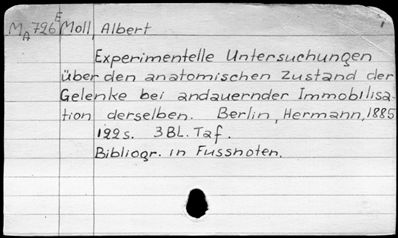 MA726E Moll, Albert
Experimentelle Untersuchungen
über den anatomischen Zustand der
Gelenke bei andauernder Immobilisa-
tion derselben. Berlin, Hermann, 1885
122s. 3BL. Taf.
Bibliogr. in Fussnoten.